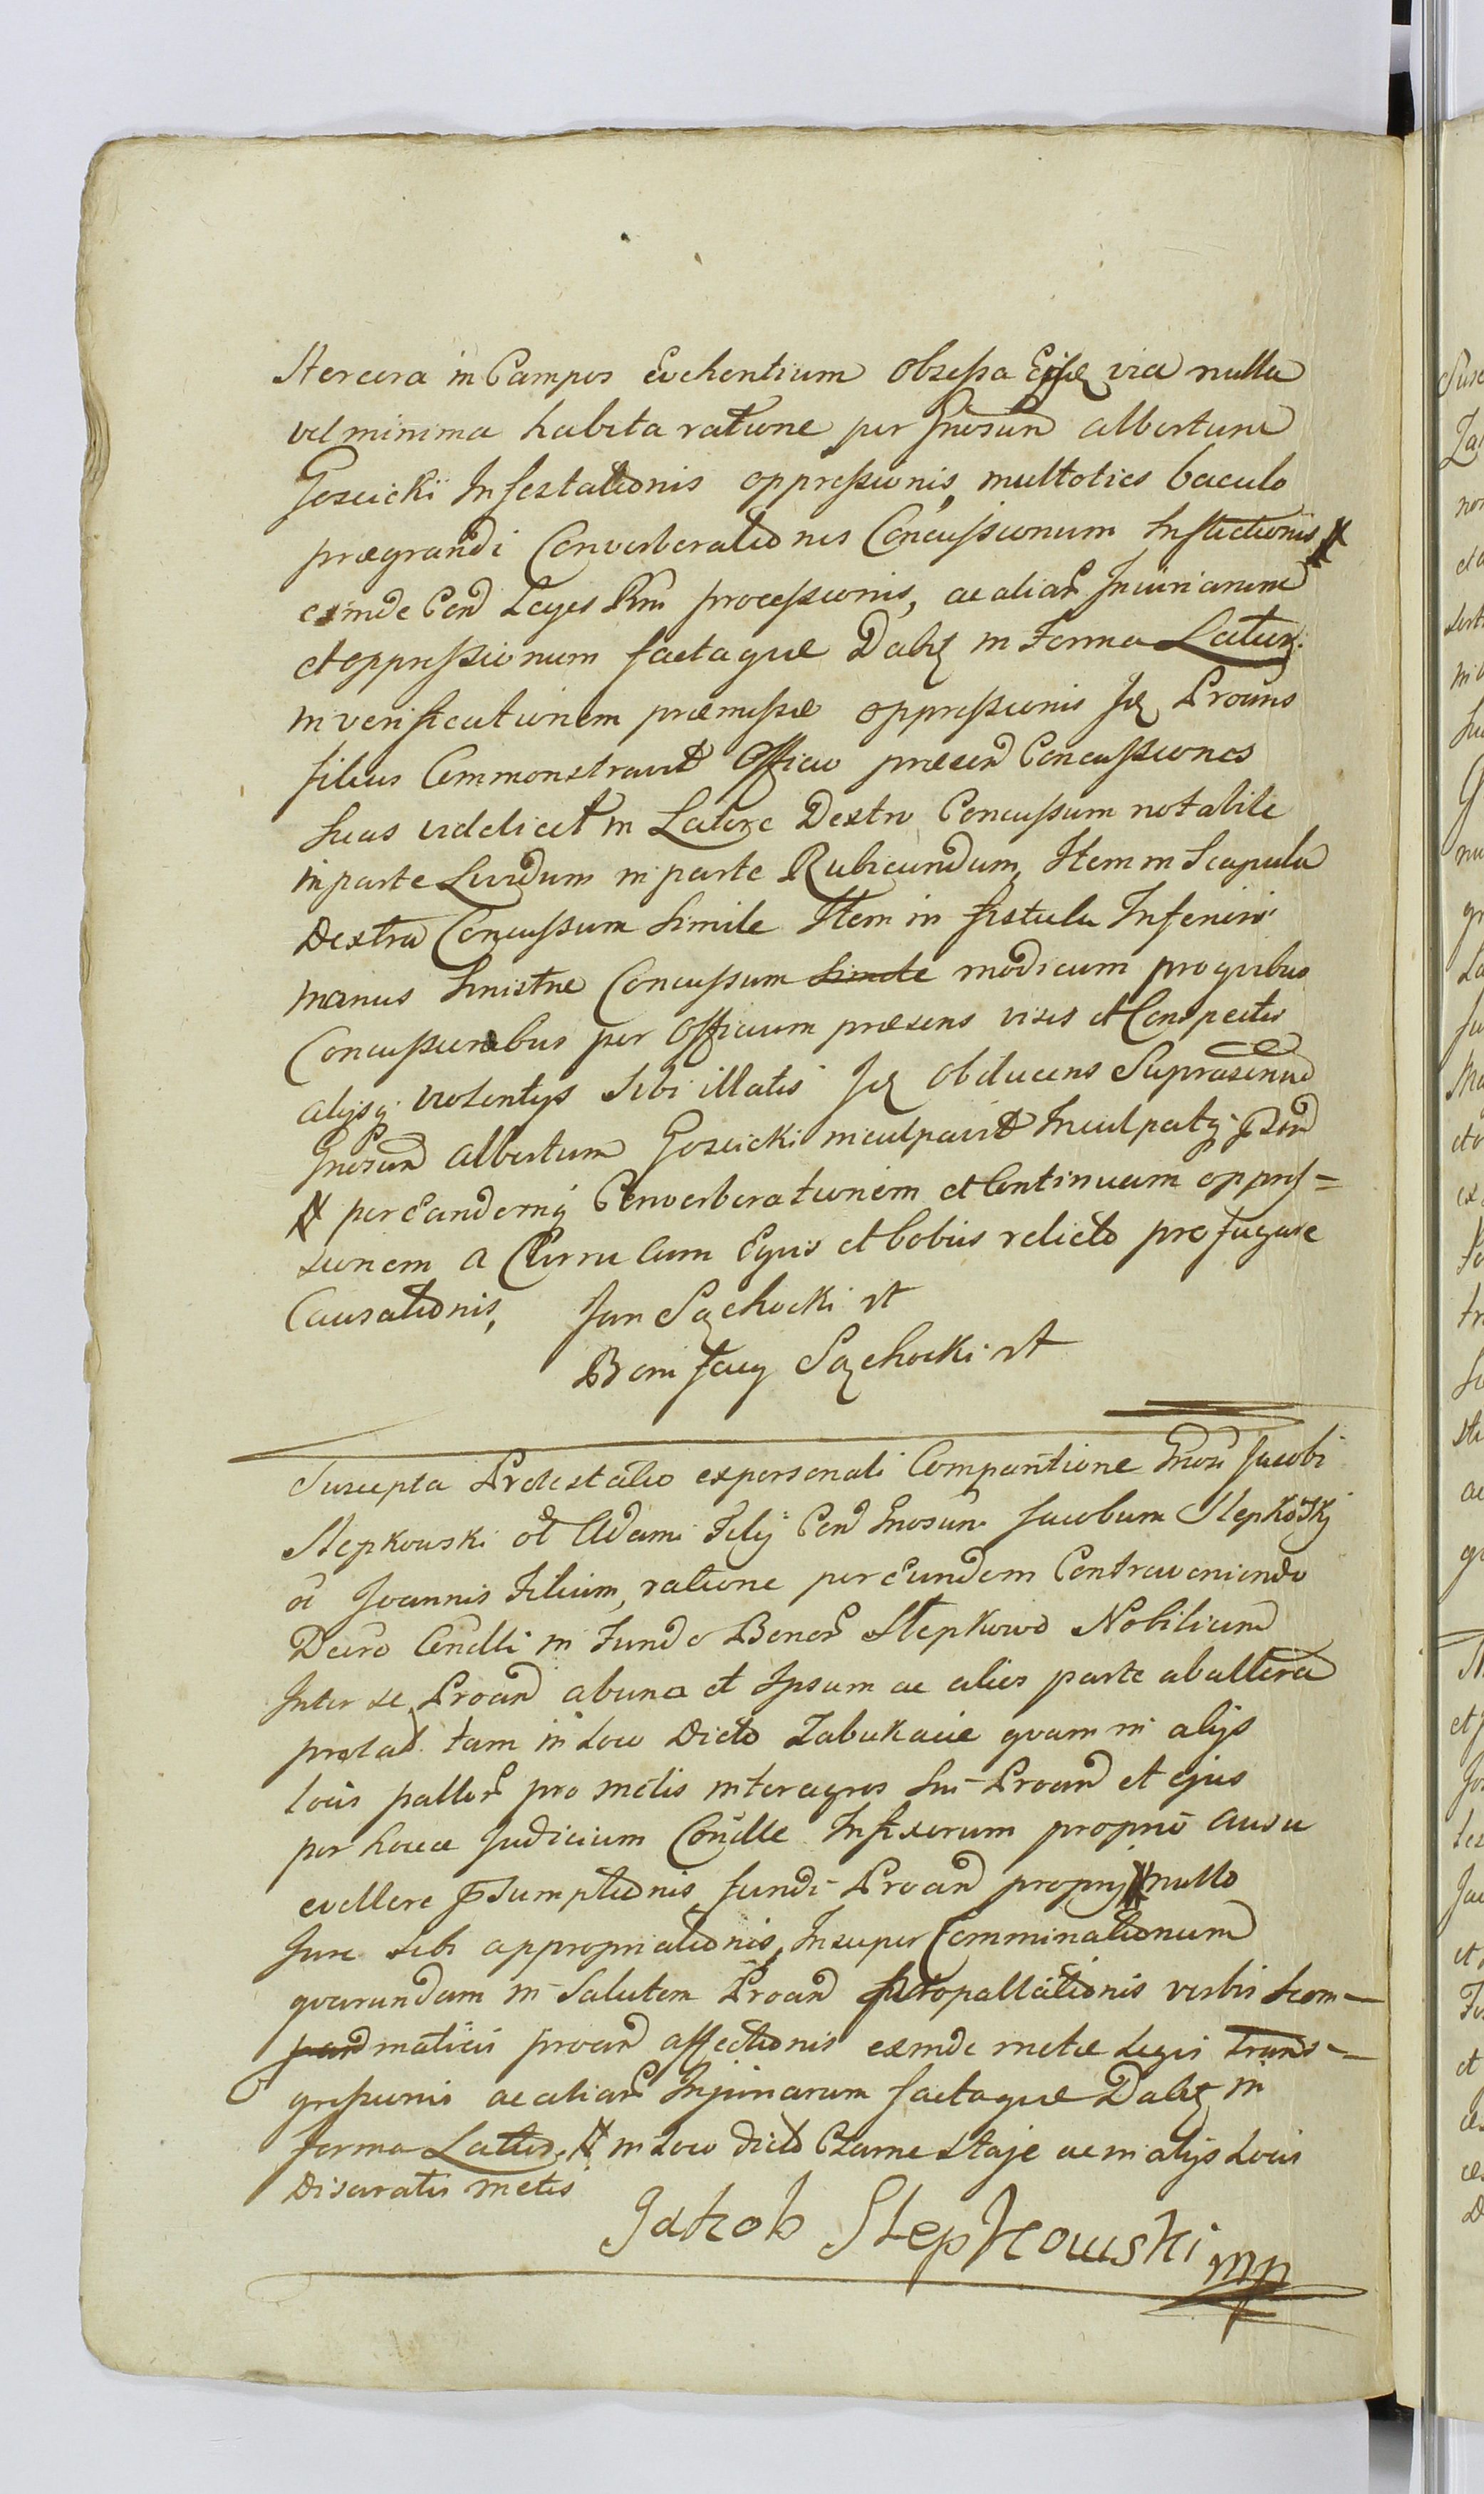 Stercora in Campos Evehentium Obsessa Ejusq via nulla
vel minima habita ratione per Gnosum Albertum
Goscicki Infestationis oppressionis, multoties baculo
prægrandi Converberationis Concussionum Inflictionis
exinde Con Leges Rni processionis, ac aliar Injuriarum
et oppressionum factaque Dabq in Forma Latiori
in verificationem præmissæ oppressionis Jdq Proans
filius Commonstravit Officio præsen Concussiones
Suas videlicet in Latere Dextro Concussum notabile
in parte Lividum in parte Rubicundum, Item in Scapula
Dextra Concussum Simile Item in fistula Inferiori
manus Sinistræ Concussum Simile modicum pro quibus
Concussionibus per Officium præsens visis et Conspectis
alijsq violentijs Sibi illatis Jdq Obducens Suprascrium
Gnosum Albertum Goscicki inculpavit Inculpatq
per Eandemq Converberationem et Continuam oppres=
sionem a Curru Cum Equis et bobus relicto profugare
Causationis,
Jan Sąchocki
Bonifacy Sąchocki
Suscepta Protestatio ex personali Comparitione Gnosi Jacobi
Stepkowski ol Adami Filij Con Gnosum Jacobum Stepkoski
ol Joannis Filium, ratione per Eundem Contraveniendo
Decreto Condlli in Fundo Bonor Stepkowo Nobilium
Inter se Proan ab una et Ipsum ac alios parte ab altera
prolat tam in Loco Dicto Zabukacie quam in alijs
locis pallor pro metis inter agros Sui Proan et ejus
per hocce Judicium Condlle Infixorum proprio ausu
evellere præsumptionis, fundi Proan proprij nullo
Jure Sibi appropriationis, Insuper Comminationum
quarundam in Salutem Proan verbis Scom-
maticis proan affectionis exinde metæ Legis trans-
gressionis ac aliar Injuriarum factaque Dabq in
forma Latiori in Loco dicto Czarne Staje ac in alijs Locis
metis
Jakob Stepkowski mp